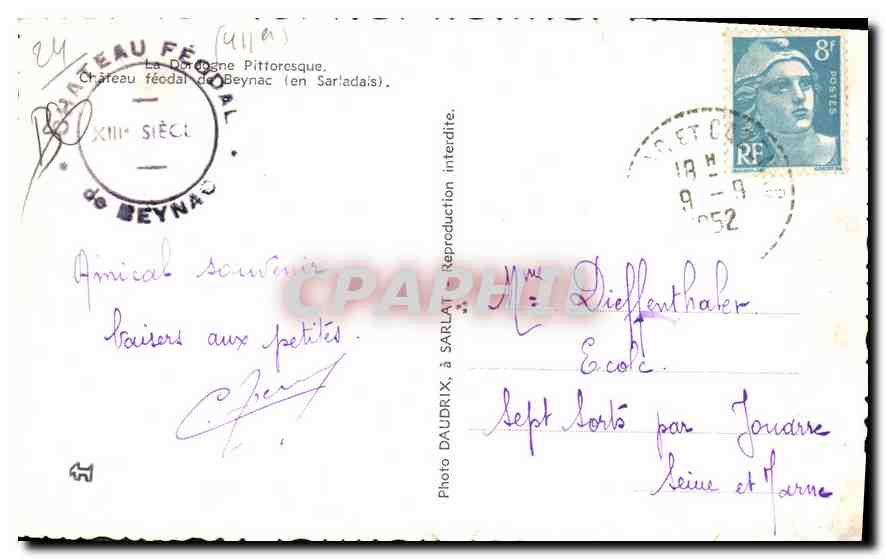 24
La Dordogne Pittoresque.
Château féodal de Beynac (en Sarladais).
CHATEAU FÉODAL
XIIIe SIÈCL
de BEYNAC
Amical souvenir
baisers aux petites.
Photo DAUDRIX, à SARLAT - Reproduction interdite.
8F
POSTES
RF
18 H
9 - 9
1952
CPAPHIL
Mme Dieffenthaler.
Ecole.
Sept Sorts par Jouarre
Seine et Marne